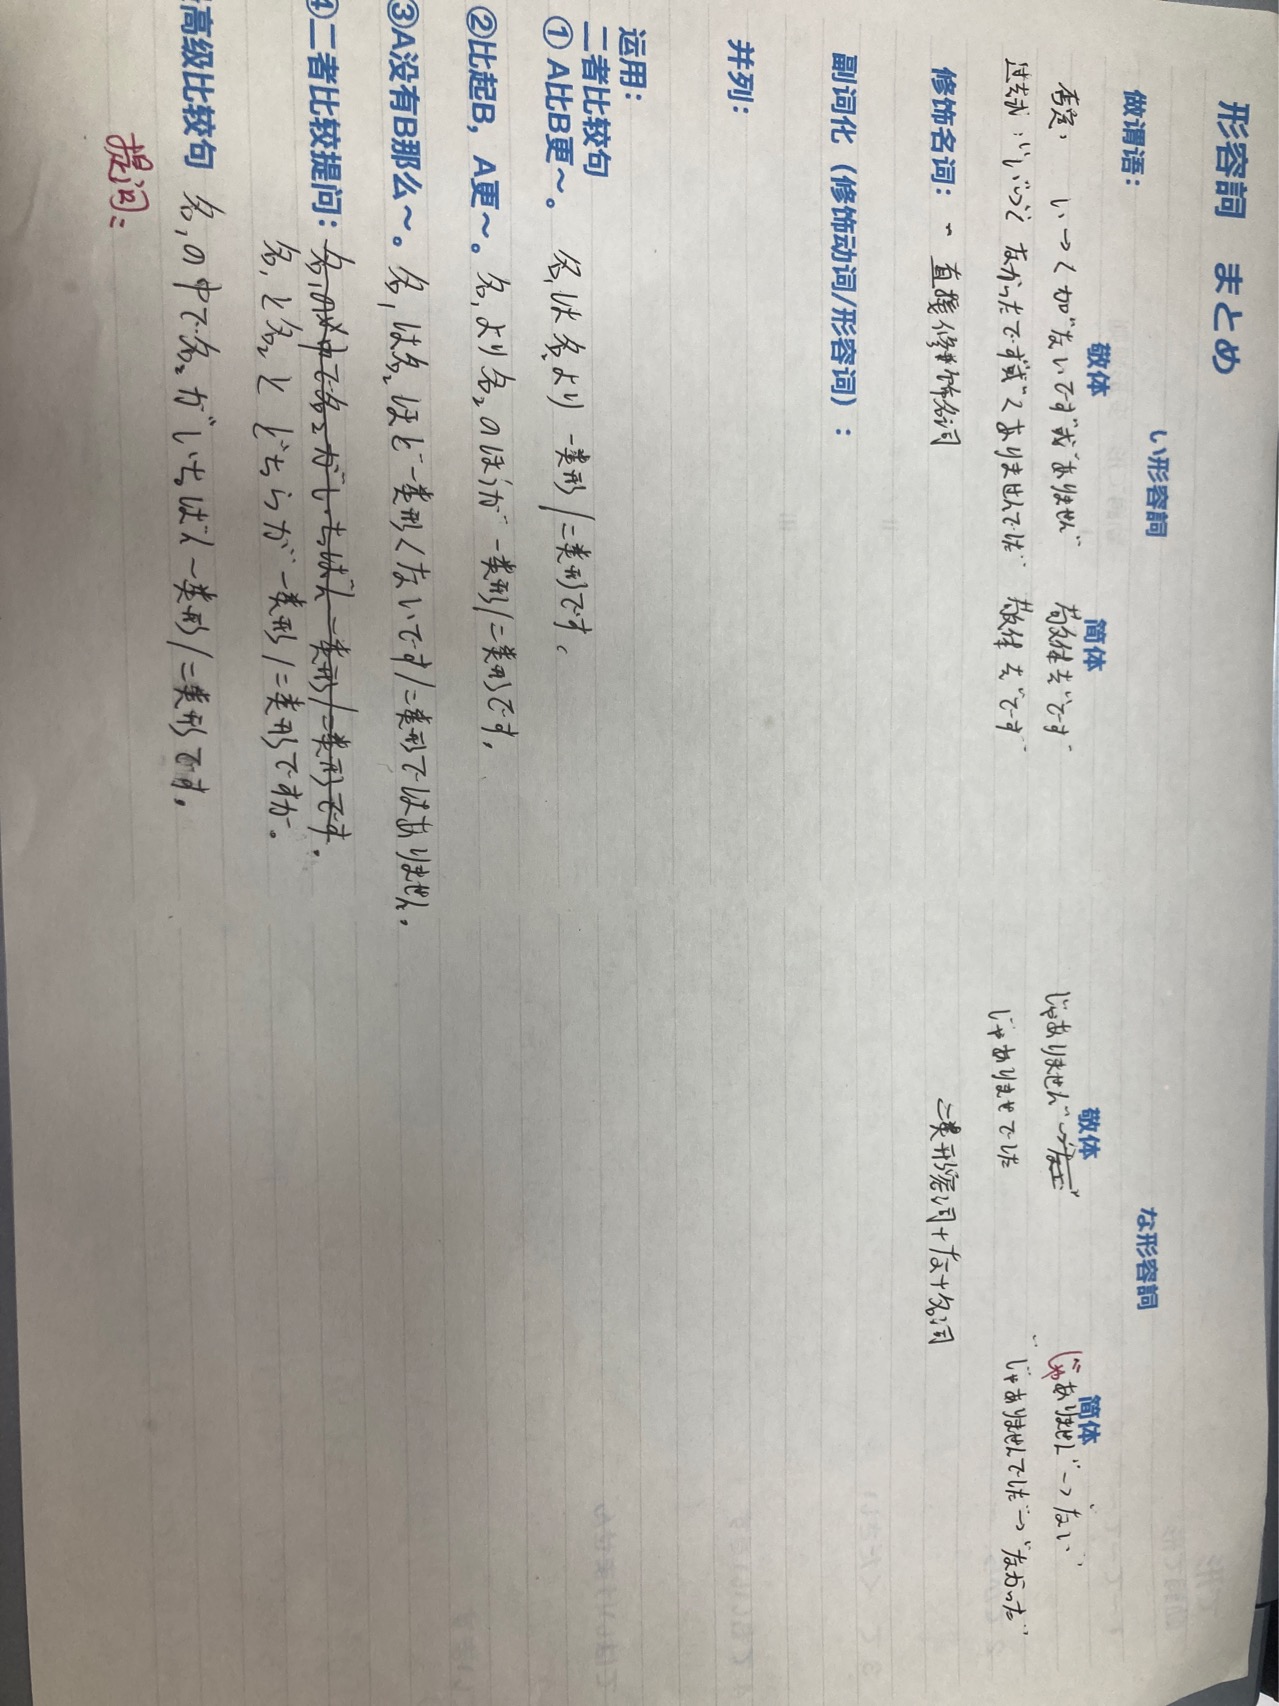 形容詞　まとめ
い形容詞　な形容詞
做谓语：　敬体　简体　敬体　简体
否定：　い→く加"ないです"或"ありません"　敬体去"です"　じゃありません　じゃありません"→"ない"
过去式："い"→"く"なかったです"或"くありませんでした"　敬体去"です"　じゃありませでした　"じゃありませんでした→"なかった"
修饰名词：一直接修飾名词　二类形容词+な+名词
副词化（修饰动词/形容词）：
并列：
运用：
二者比较句
① A比B更～。　名₁は名₂より 一类形/二类形です。
②比起B，A更～。名₁より名₂のほうが 一类形/二类形です。
③A没有B那么～。名₁は名₂ほど一类形くないです/二类形ではありません。
④二者比较提问：名₁の中で名₂がいちばん一类形/二类形です。
名₁と名₂とどちらが一类形/二类形ですか。
高级比较句　名₁の中で名₂がいちばん一类形/二类形です。
提问：